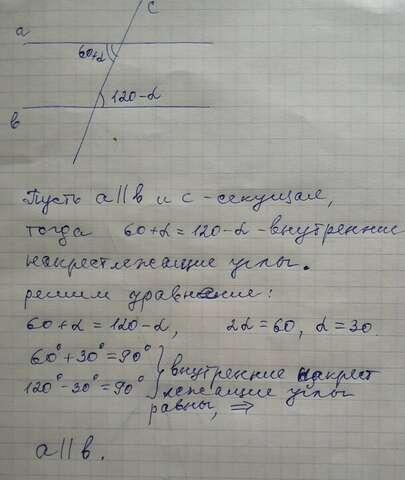 c
a
60+α
120-α
в
Пусть a∥в и с - секущая,
тогда 60+α=120-α - внутренние
накрестлежащие углы.
решим уравнение:
60+α=120-α, 2α=60, α=30.
60°+30°=90° } внутренние накрест
120°-30°=90° лежащие углы
равны, ⇒
a∥в.